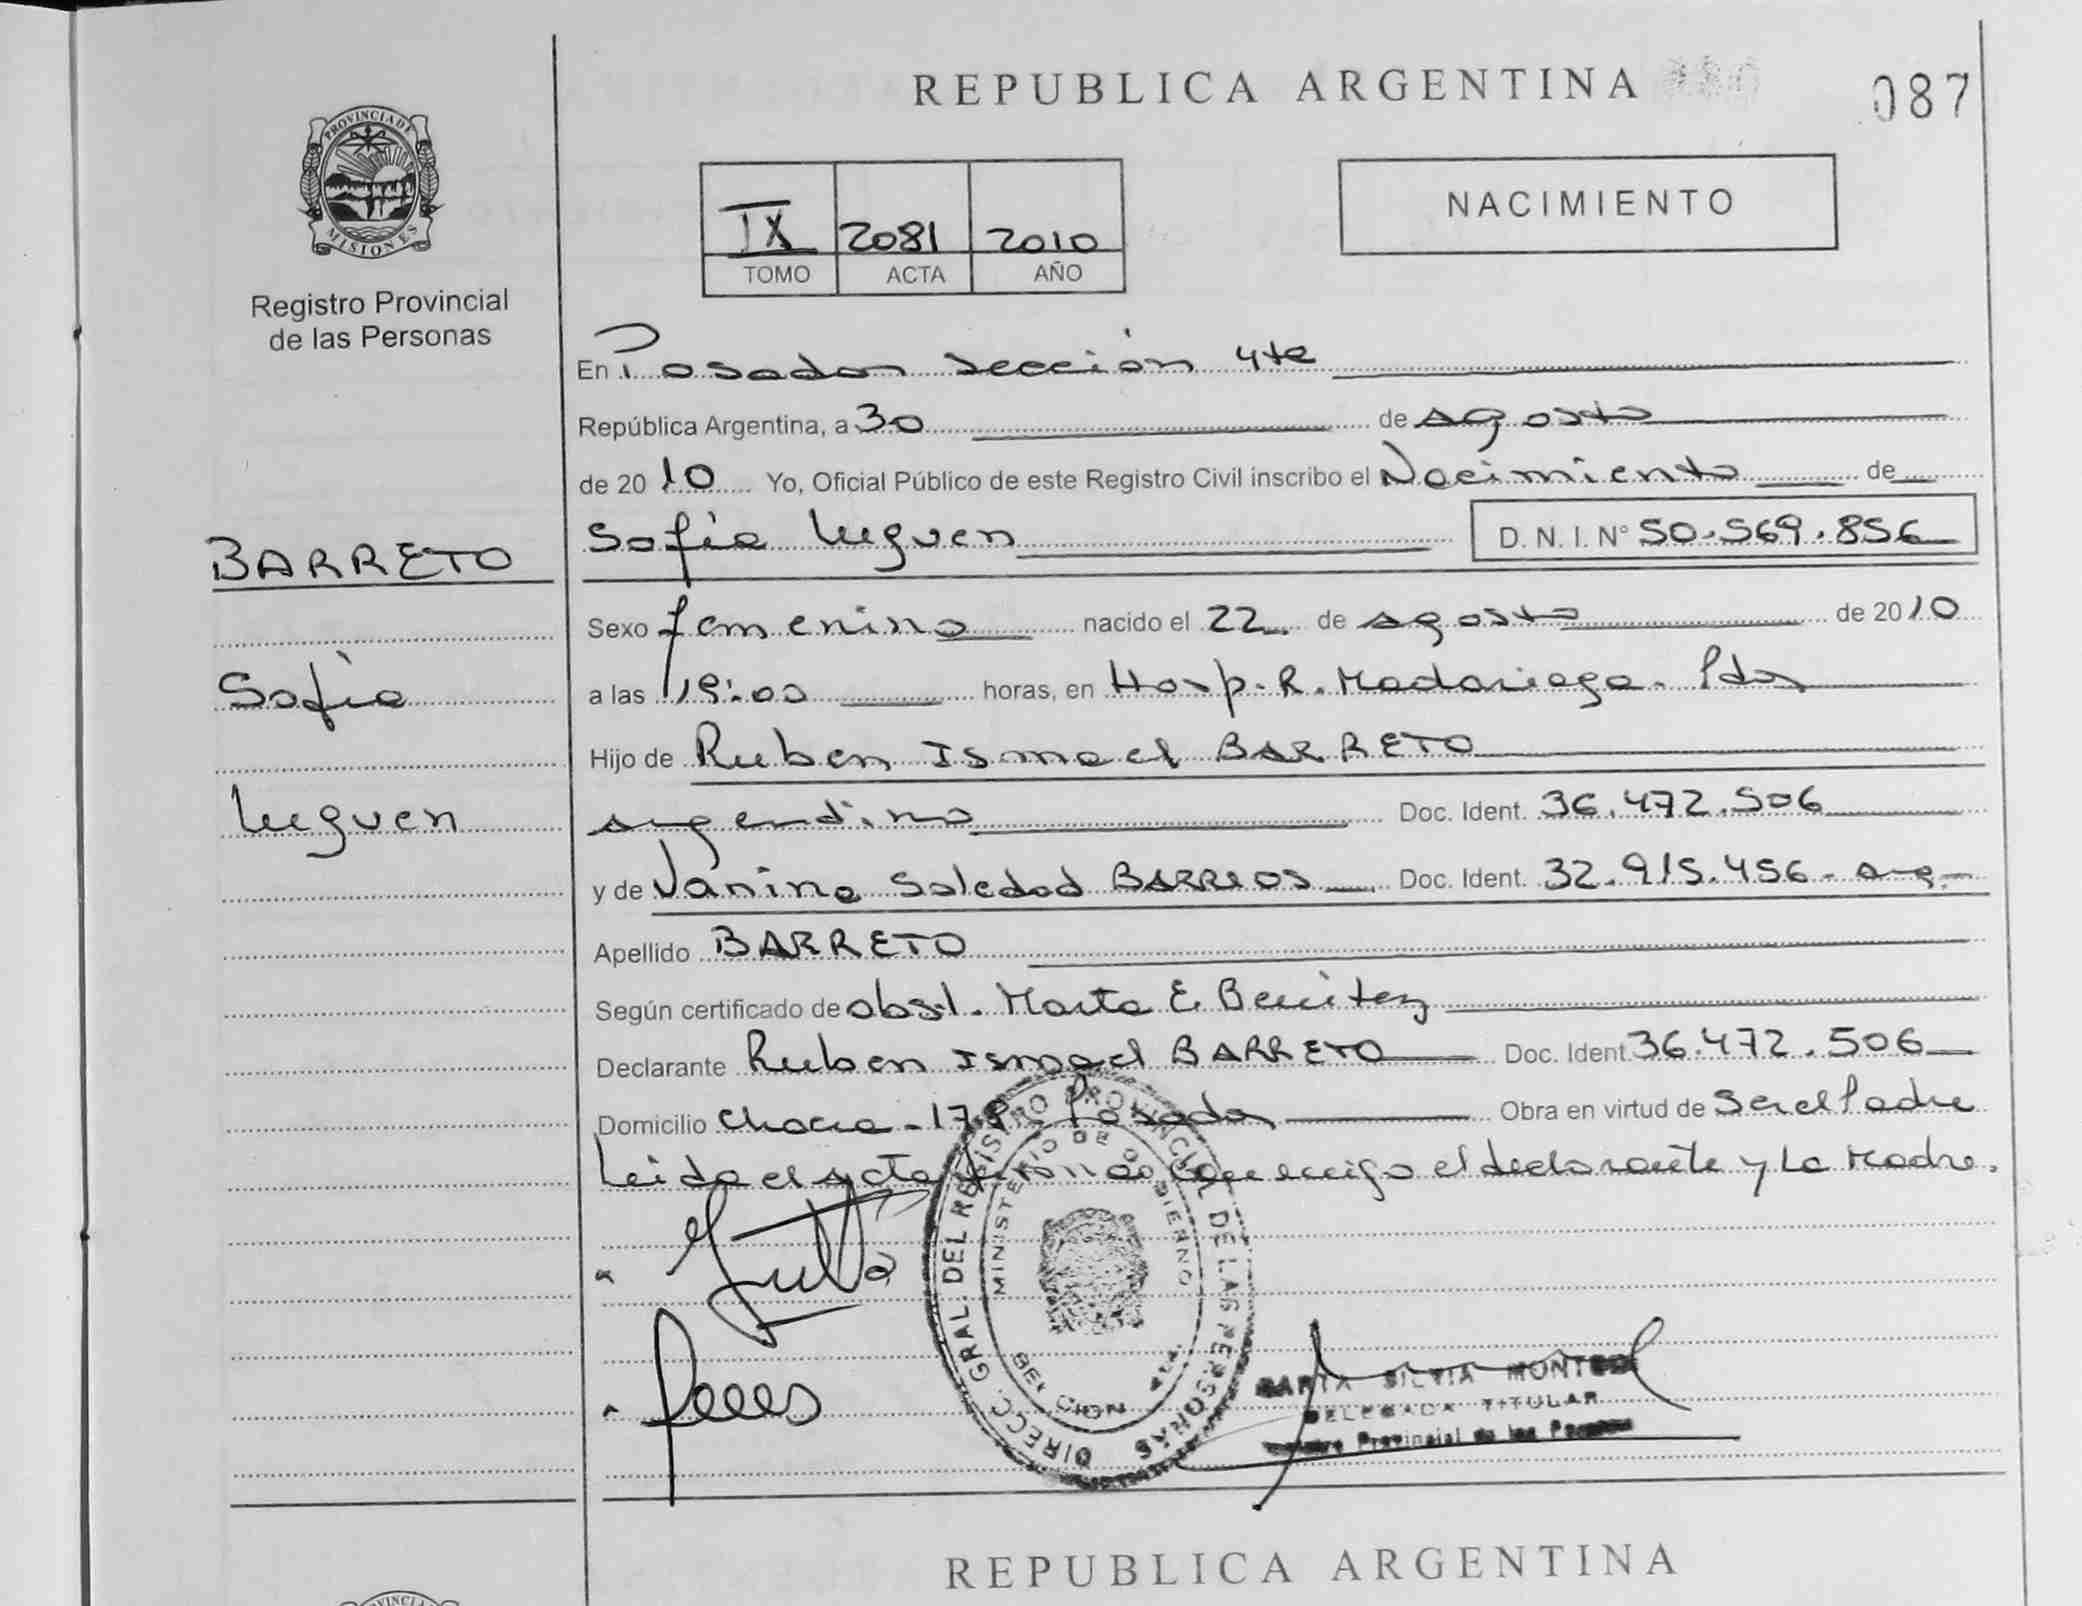 REPUBLICA ARGENTINA
087
PROVINCIA DE
MISIONES
Registro Provincial
de las Personas
NACIMIENTO
IX 2081 2010
TOMO ACTA AÑO
En Posadas sección 4ta
República Argentina, a 30 de agosto
de 2010 Yo, Oficial Público de este Registro Civil inscribo el Nacimiento de
BARRETO
Sofia D. N. I. N° 50.569.856
Sexo femenino nacido el 22 de agosto de 2010
Sofia
a las 19:00 horas, en Hosp. R. Madariaga. Pdas
Hijo de Ruben Ismael BARRETO
argentino Doc. Ident. 36.472.506
y de Vanina Soledad BARRIOS Doc. Ident. 32.915.456 - arg.
Apellido BARRETO
Según certificado de obst. Marta E. Benitez
Declarante Ruben Ismael BARRETO Doc. Ident. 36.472.506
Domicilio chacra - 178 Posadas Obra en virtud de Ser el Padre
Leida el acta firman conmigo el declarante y La Madre.
DIRECC. GRAL. DEL REGISTRO PROVINCIAL DE LAS PERSONAS
MINISTERIO DE GOBIERNO
SECCION 4ta.
SILVIA
DELEGADA TITULAR
Provincial de las Personas
REPUBLICA ARGENTINA